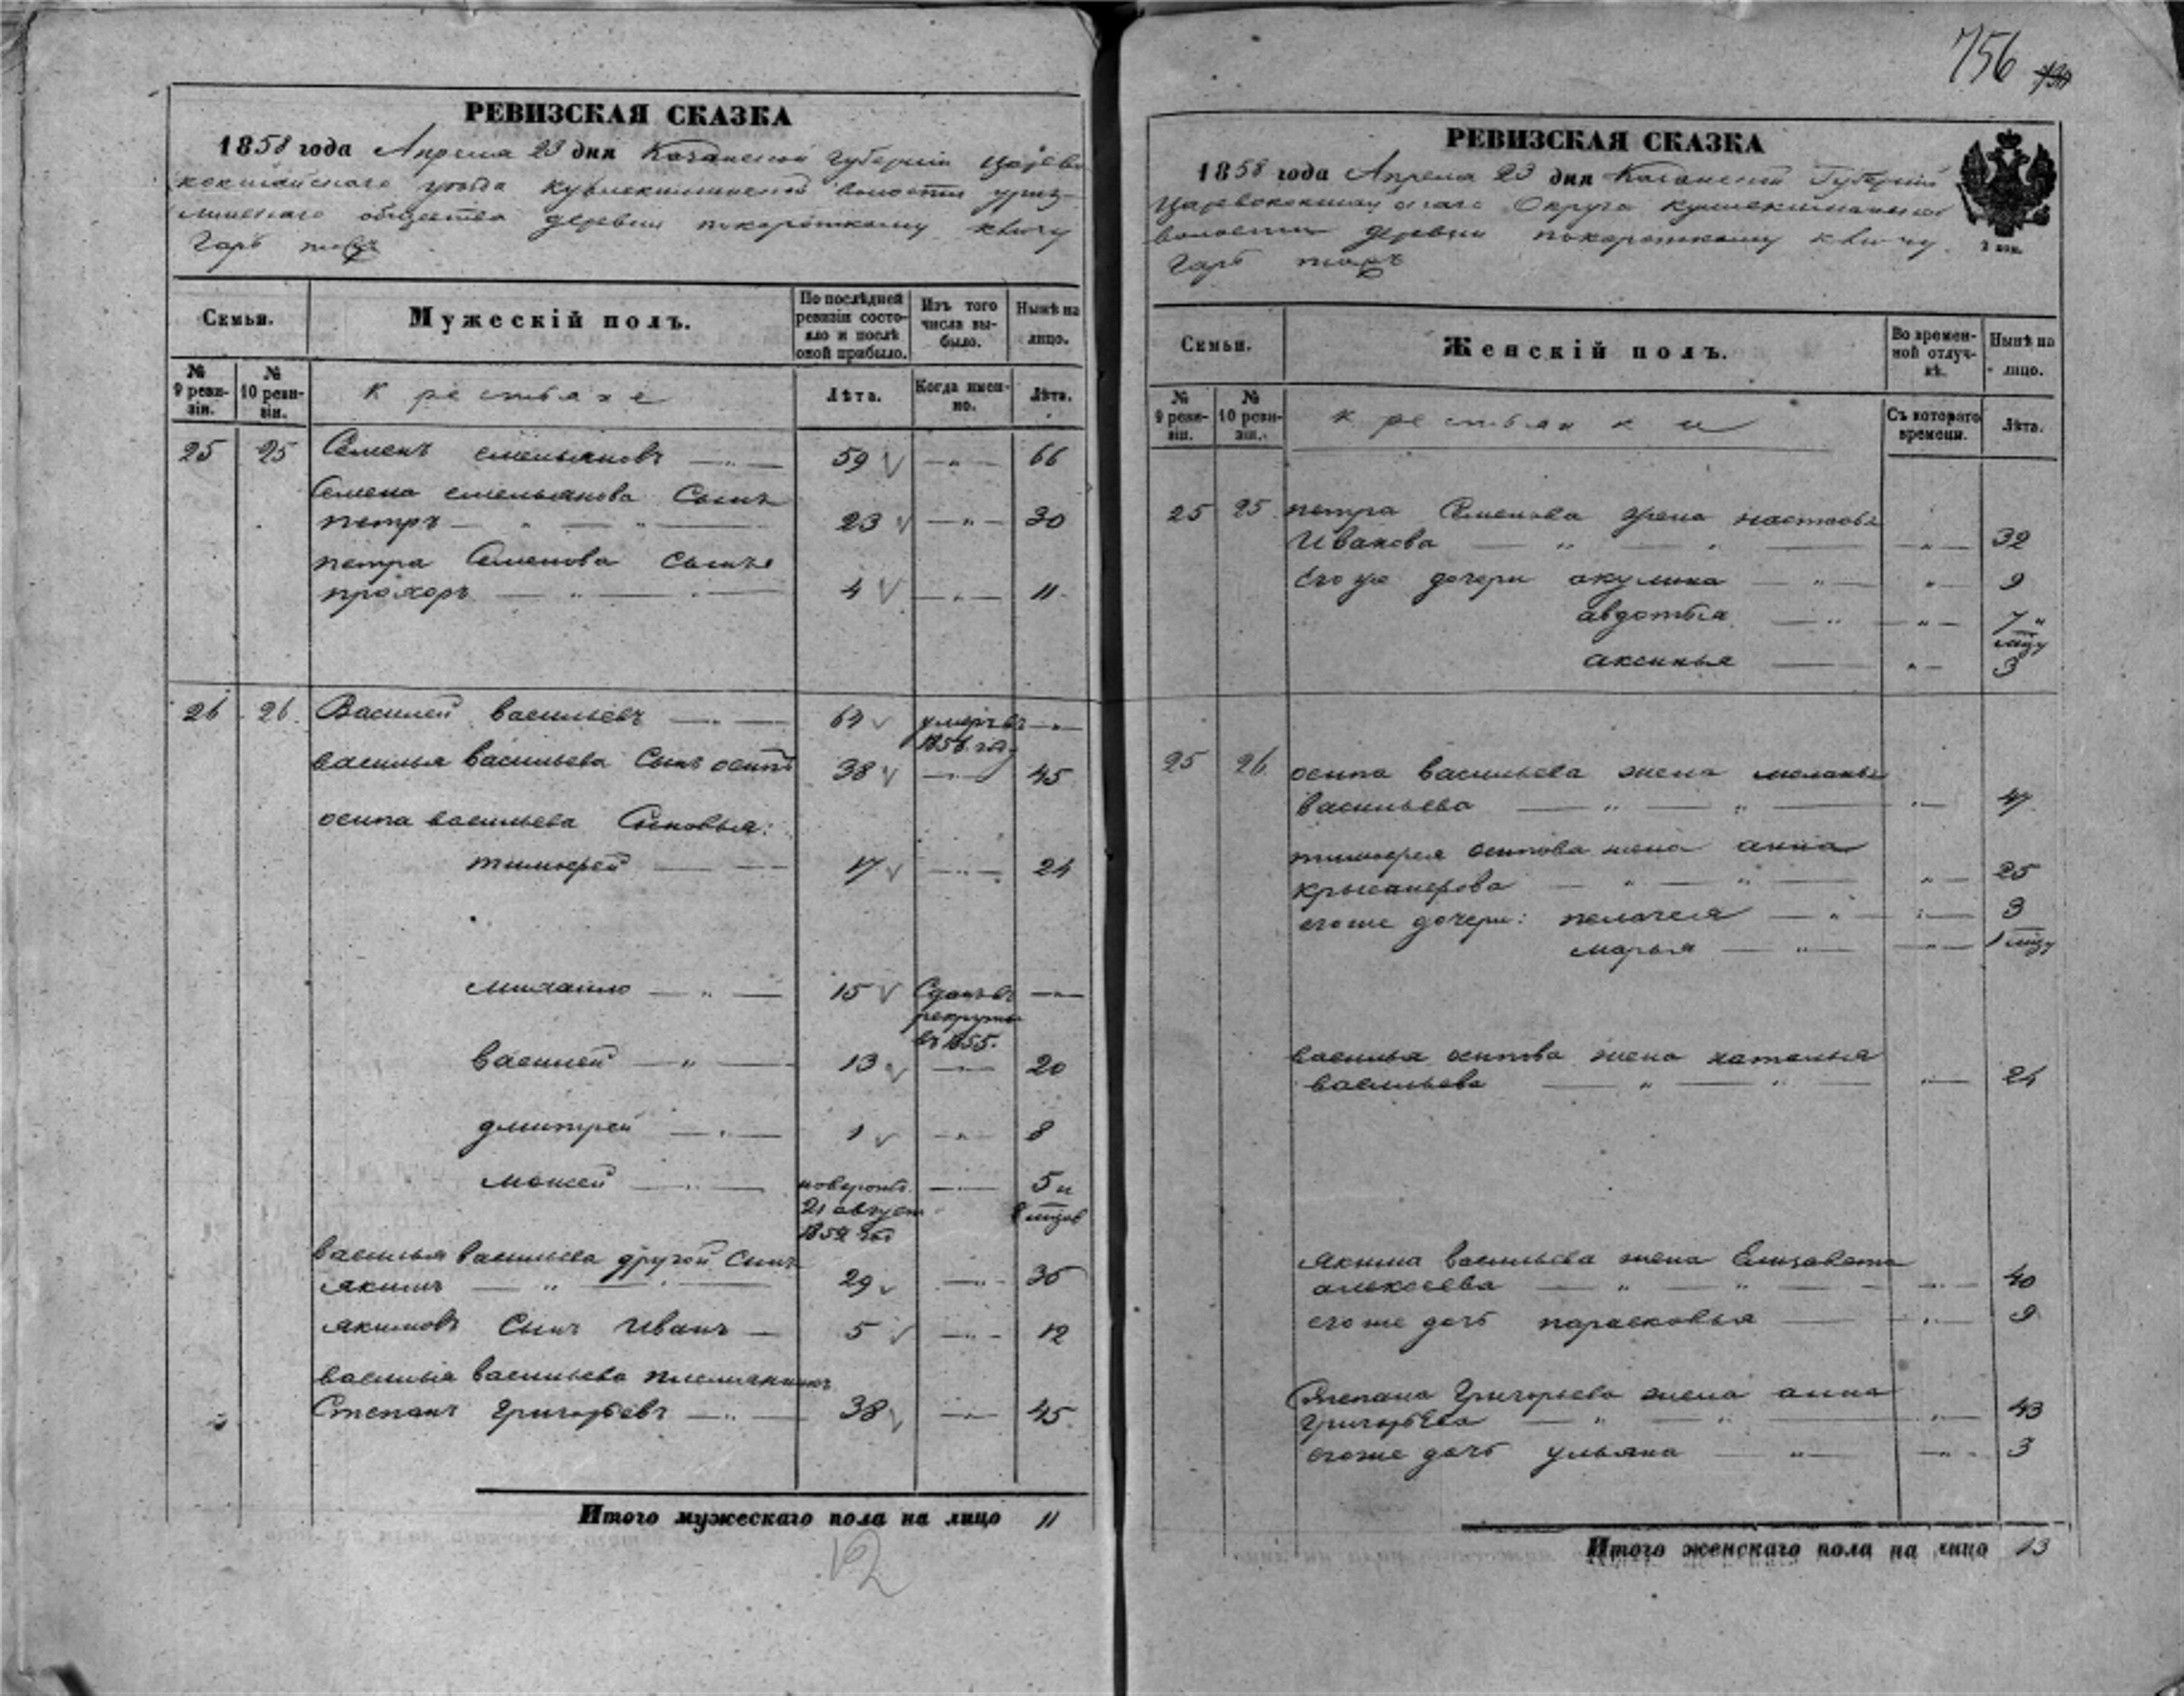 РЕВИЗСКАЯ СКАЗКА
1858 года Апреля 23 дня Казанской Губернии Царево
кокшайскаго уезда волости
общества деревни покороткому ключу
Гарь
Семьи.
Мужескій полъ.
По послѣдней ревизіи состояло и послѣ оной прибыло.
Изъ того числа выбыло.
Нынѣ на лицо.
№ 9 ревизіи.
№ 10 ревизіи.
Крестьяне
Лѣта.
Когда именно.
Лѣта.
25 25 Семенъ емельяновъ — „ — 59 — „ — 66
Семена емельянова Сынъ
петръ — „ — „ — 23 — „ — 30
петра Семенова Сынъ
прохоръ — „ — 4 — „ — 11
26 26 Василей васильевъ — „ — 64 умеръ въ — „
1856 году
василья васильева Сынъ осипъ 38 — „ — 45
осипа васильева Сыновья:
тимофей — 17 — „ — 24
михайло — „ — 15 Сданъ въ — „ —
рекруты
въ 1855.
василей — „ — 13 — „ — 20
дмитрей — „ — 1 — „ — 8
моисей — „ — новорожд. — „ — 5 и
21 август 8 мцов
1852 год
василья васильева другой Сынъ
якимъ — „ — 29 — „ — 36
якимовъ Сынъ Иванъ — 5 — „ — 12
василья васильева племянникъ
Степанъ Григорьевъ — „ — 38 — „ — 45
Итого мужескаго пола на лицо 11
12
756
РЕВИЗСКАЯ СКАЗКА
1858 года Апреля 23 дня Казанской Губернии
Царевококшайскаго Округа
волости деревни покороткому ключу
Гарь
2 коп.
Семьи.
Женскій полъ.
Во временной отлучкѣ.
Нынѣ на лицо.
№ 9 ревизіи.
№ 10 ревизіи.
Крестьянки
Съ котораго времени.
Лѣта.
25 25 петра Семенова жена настасья
Иванова — „ — „ — — „ — 32
Его же дочери акулина — „ — „ — 9
авдотья — „ — „ — 7 „
мцу
аксинья — „ — 3
25 26 осипа васильева жена меланья
Васильева — „ — „ — „ — 47
тимофея осипова жена анна
крысанфова — „ — „ — „ — 25
егоже дочери: пелагея — „ — „ — 3
марья — „ — „ — 1 мцу
василья осипова жена наталья
васильева — „ — „ — „ — 24
якима васильева жена Елизавета
алексеева — „ — „ — „ — 40
егоже дочь парасковья — „ — 9
Степана Григорьева жена анна
Григорьева — „ — „ — „ — 43
егоже дочь ульяна — „ — „ — 3
Итого женскаго пола на лицо 13